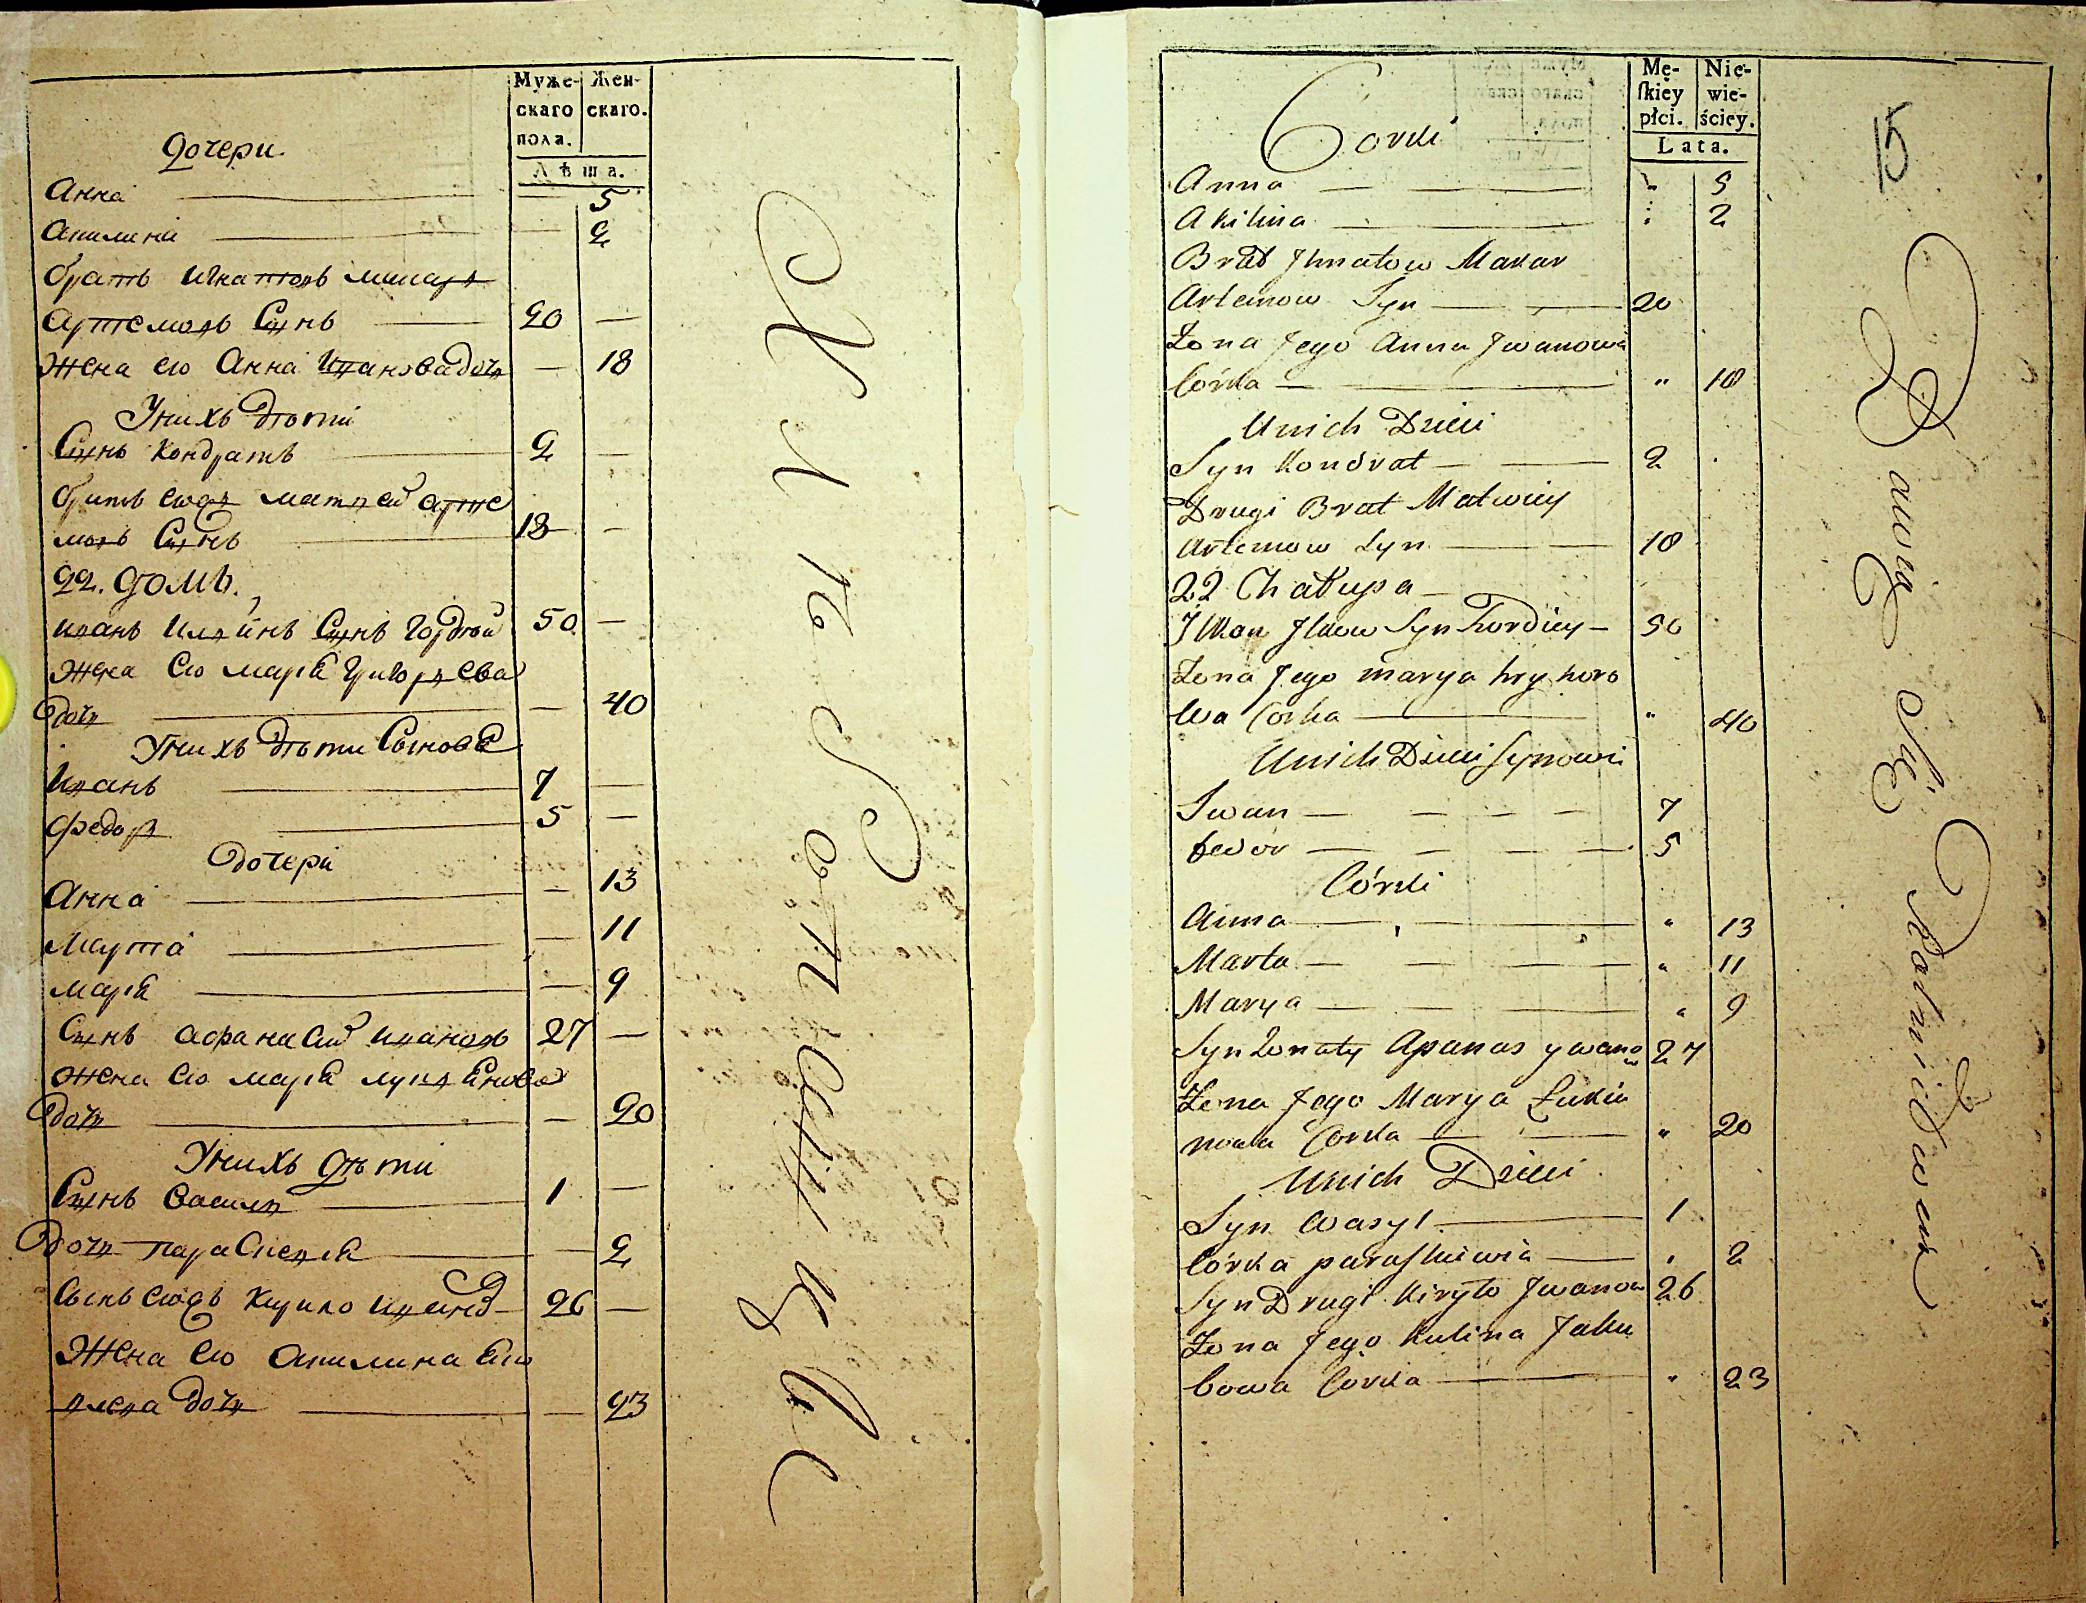 Муже-
скаго
пола.
Жен-
скаго.
Лѣта.
Дочери
Анна — 5
Акилина — 2
братъ Игнатовъ Макаръ
Артемовъ Сынъ 20 —
Жена его Анна Иванова дочь — 18
У нихъ дѣти
Сынъ Кондратъ 2 —
братъ его Матвей Арте
мовъ Сынъ 18 —
22. домъ.
Иванъ Ильинъ Сынъ Гордѣй 50 —
Жена Его Марія Григорьева
дочь — 40
У нихъ дѣти Сыновья
Иванъ 7 —
Федоръ 5 —
Дочери
Анна — 13
Марта — 11
Марія — 9
Сынъ Афанасій Ивановъ 27 —
Жена Его Марія Лукьянова
дочь — 20
У нихъ дѣти
Сынъ Василь 1 —
Дочь Параскевія — 2
Сынъ Кирило Ивановъ 26 —
Жена Его Акилина Яко
влева дочь — 23
Mę-
ſkiey
płci.
Nie-
wie-
ściey.
Lata.
15
Corki
Anna — " 5
Akilina — " 2
Brat Jhnatow Makar
Artemow Syn — 20
Żona Jego Anna Jwanowa
Córka — " 18
Unich Dzieci
Syn Kondrat — 2
Drugi Brat Matwiey
Artemow Syn — 18
22 Chałupa
Jwan Jlikow Syn Hordiey — 50
Żona Jego Marya Hryhoro
wa Corka — " 40
Unich Dzieci Synowie
Jwan — 7
Fedor — 5
Córki
Anna — " 13
Marta — " 11
Marya — " 9
Syn Żonaty Apanas ywanow 27
Żona Jego Marya Łukia
nowa Corka — " 20
Unich Dzieci
Syn Wasyl — 1
Córka paraſkiewia — " 2
Syn Drugi Kiryło Jwanow 26
Żona Jego Kulina Jaku
bowa Córka — " 23